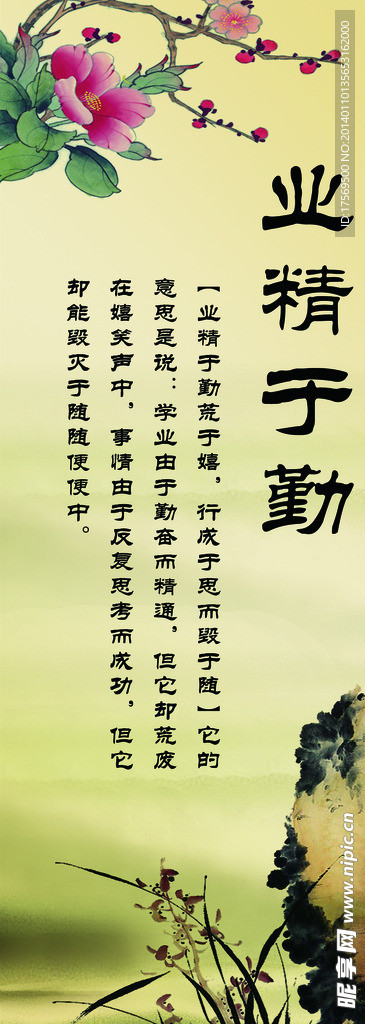 业精于勤
【业精于勤荒于嬉，行成于思而毁于随】它的
意思是说：学业由于勤奋而精通，但它却荒废
在嬉笑声中，事情由于反复思考而成功，但它
却能毁灭于随随便便中。
ID:17569500 NO:20140110135653162000
昵享网 www.nipic.cn